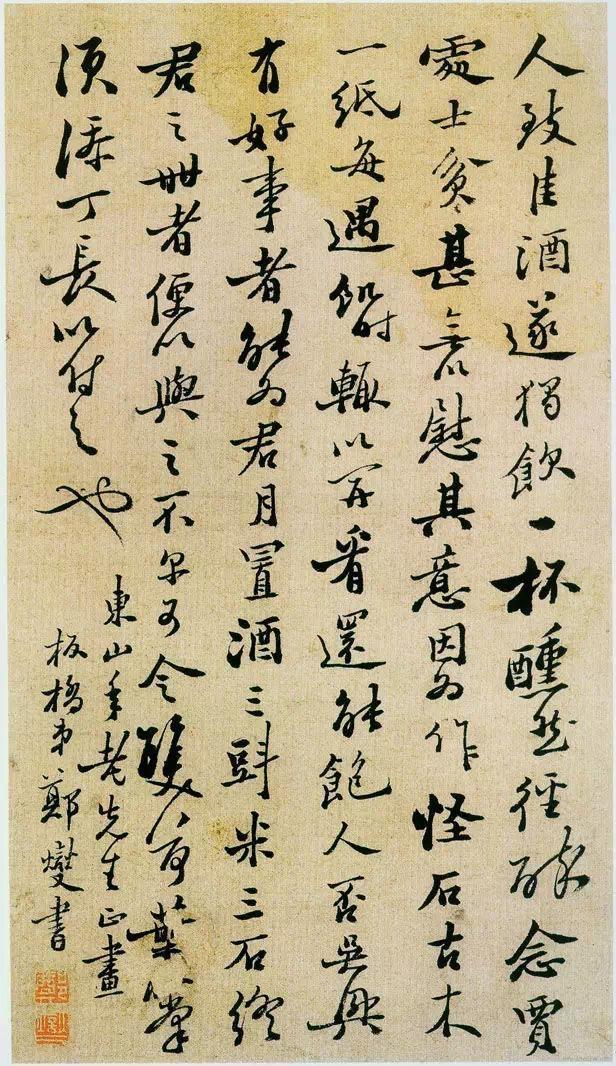 人致佳酒遂獨飲一杯醺然徑醉念賈
處士貧甚無以慰其意因为作怪石古木
一紙每遇飢時輒以開看還能飽人否吳興
有好事者能为君月置酒三斗米三石終
君之世者便以與之不尔可令雙荷葉掌
須添丁長以付之也
東山年老先生正畫
板橋弟鄭燮書